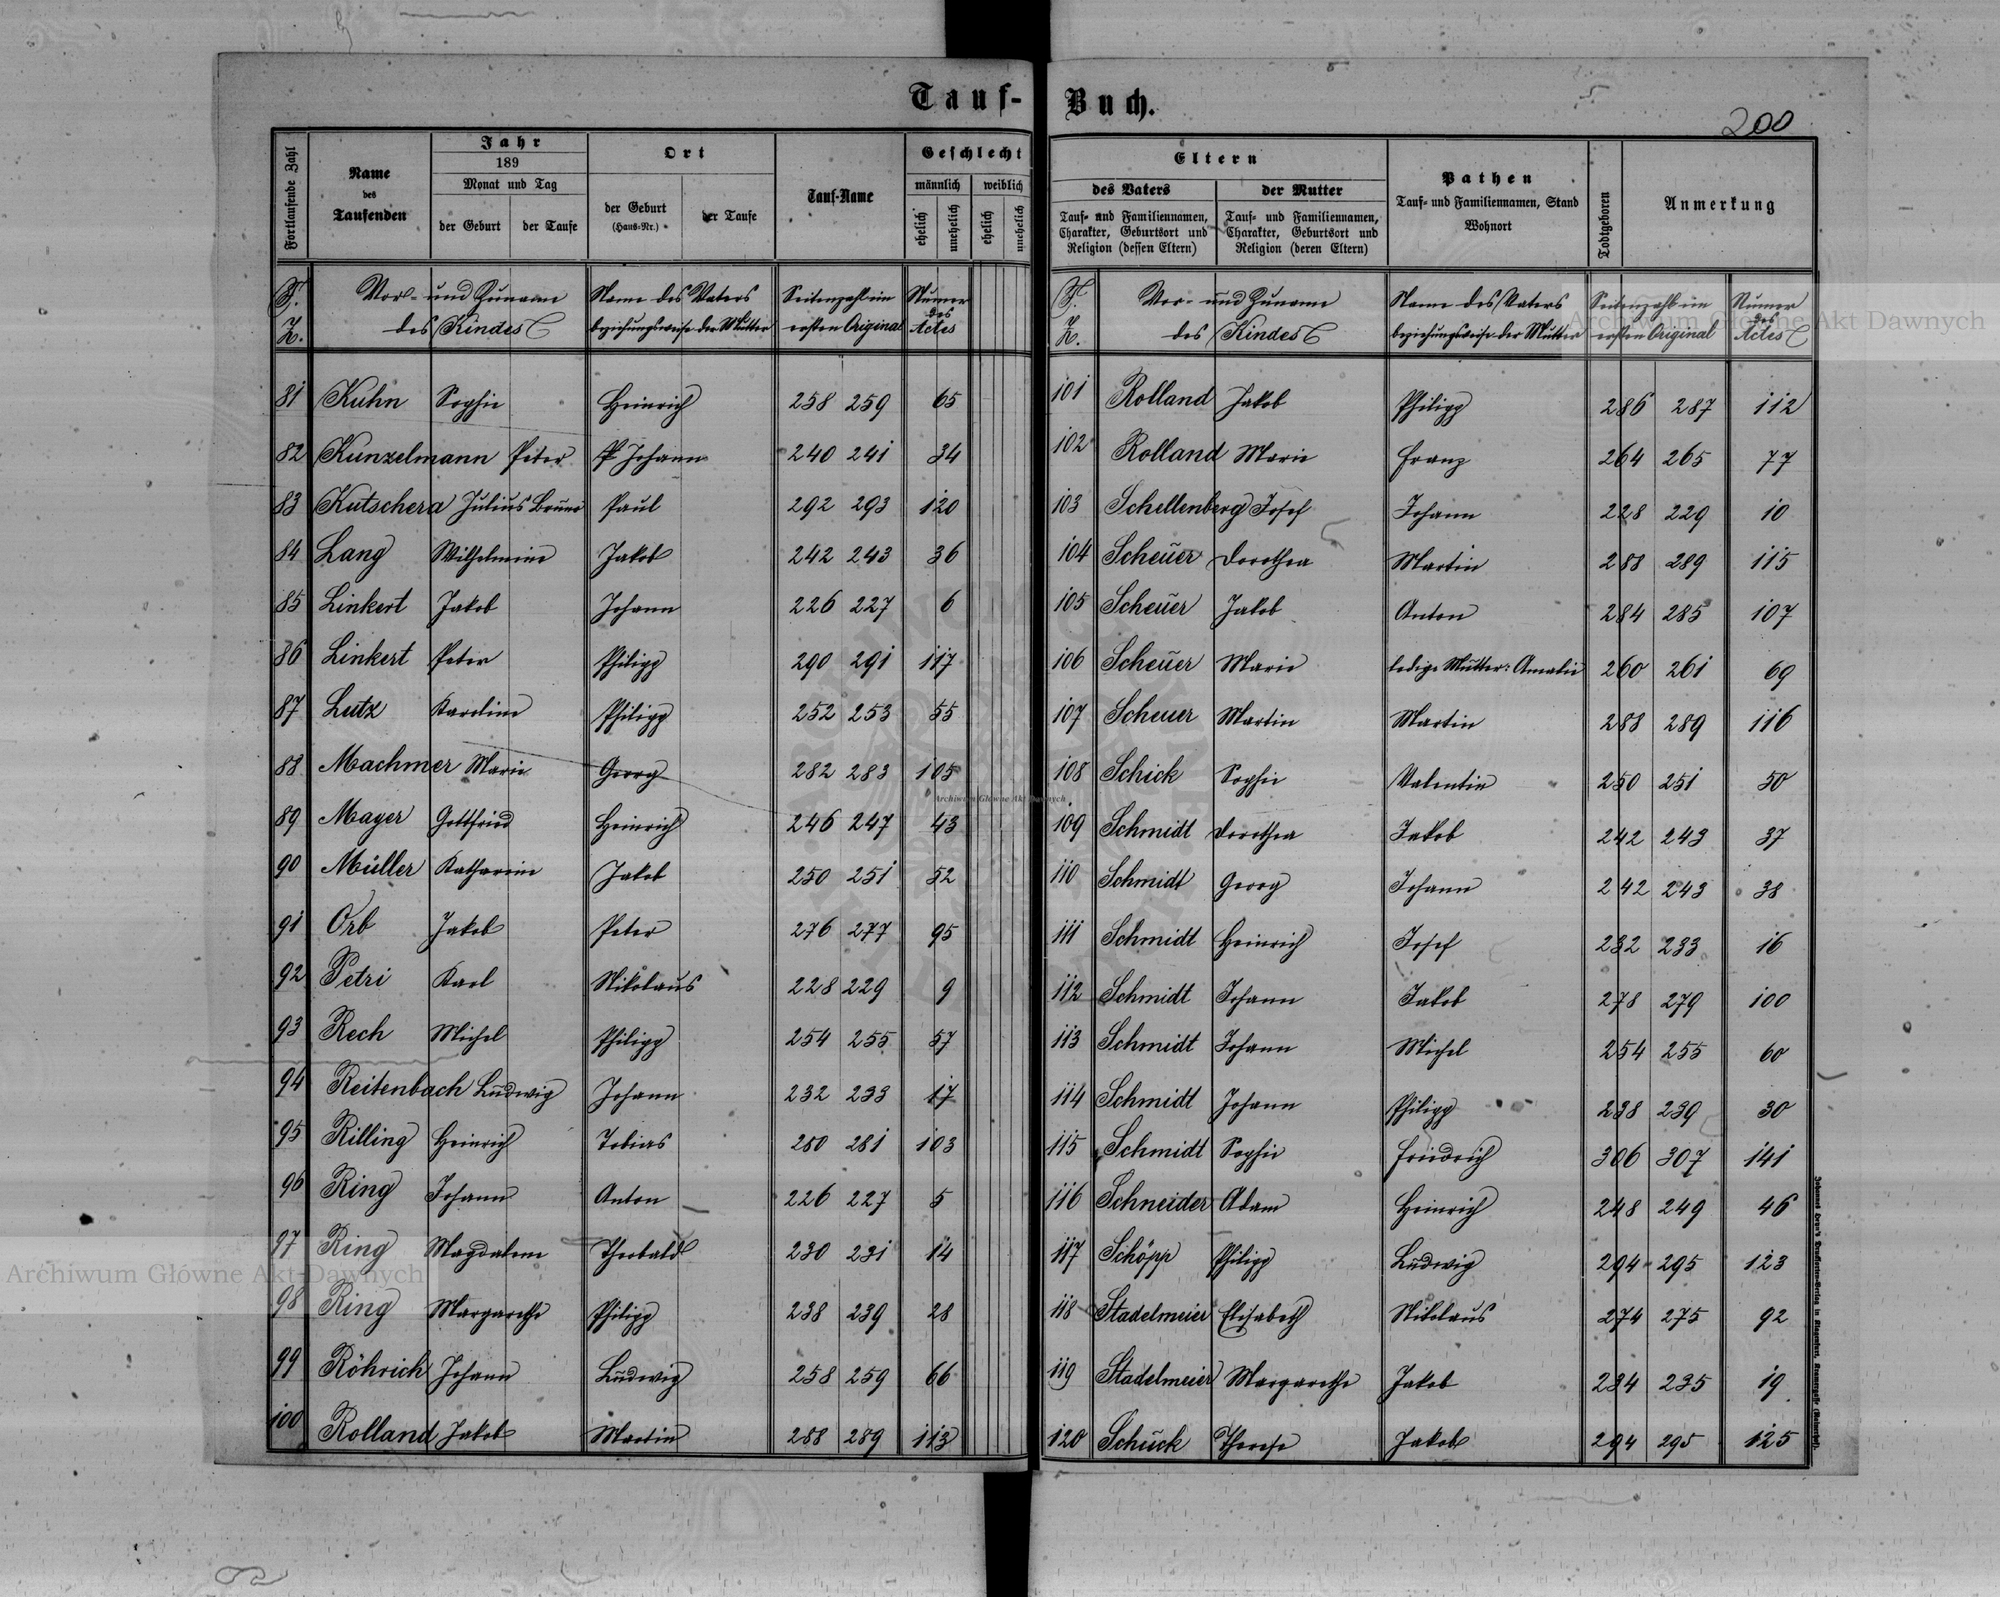 Tauf-Buch.
200
Fortlaufende Zahl
Name des Taufenden
Jahr 189
Monat und Tag
der Geburt
der Taufe
Ort
der Geburt (Haus-Nr.)
der Taufe
Tauf-Name
Geschlecht
männlich
weiblich
ehelich
unehelich
ehelich
unehelich
F. Z.
Vor- und Zuname des Kindes
Name des Vaters beziehungsweise der Mutter
Seitenzahl im ersten Original
Numer des Actes
81 Kuhn Sophie Heinrich 258 259 65
82 Kunzelmann Peter Johann 240 241 34
83 Kutschera Julius Bruno Paul 292 293 120
84 Lang Wilhelmine Jakob 242 243 36
85 Linkert Jakob Johann 226 227 6
86 Linkert Peter Philipp 290 291 117
87 Lutz Karoline Philipp 252 253 55
88 Machmer Marie Georg 282 283 105
89 Mayer Gottfried Heinrich 246 247 43
90 Müller Katharine Jakob 250 251 52
91 Orb Jakob Peter 276 277 95
92 Petri Karl Nikolaus 228 229 9
93 Rech Michel Philipp 254 255 57
94 Reitenbach Ludwig Johann 232 233 17
95 Rilling Heinrich Tobias 280 281 103
96 Ring Johann Anton 226 227 5
97 Ring Magdalene Theobald 230 231 14
98 Ring Margarethe Philipp 238 239 28
99 Röhrich Johann Ludwig 258 259 66
100 Rolland Jakob Martin 288 289 113
Eltern
des Vaters
der Mutter
Tauf- und Familiennamen, Charakter, Geburtsort und Religion (dessen Eltern)
Tauf- und Familiennamen, Charakter, Geburtsort und Religion (deren Eltern)
Pathen
Tauf- und Familiennamen, Stand
Wohnort
Todtgeboren
Anmerkung
F. Z.
Vor- und Zuname des Kindes
Name des Vaters beziehungsweise der Mutter
Seitenzahl im ersten Original
Numer des Actes
101 Rolland Jakob Philipp 286 287 112
102 Rolland Marie Franz 264 265 77
103 Schellenberg Josef Johann 228 229 10
104 Scheuer Dorothea Martin 288 289 115
105 Scheuer Jakob Anton 284 285 107
106 Scheuer Marie ledige Mutter: Amalie 260 261 69
107 Scheuer Martin Martin 288 289 116
108 Schick Sophie Valentin 250 251 50
109 Schmidt Dorothea Jakob 242 243 37
110 Schmidt Georg Johann 242 243 38
111 Schmidt Heinrich Josef 232 233 16
112 Schmidt Johann Jakob 278 279 100
113 Schmidt Johann Michel 254 255 60
114 Schmidt Johann Philipp 238 239 30
115 Schmidt Sophie Friedrich 306 307 141
116 Schneider Adam Heinrich 248 249 46
117 Schöpp Philipp Ludwig 294 295 123
118 Stadelmeier Elisabeth Nikolaus 274 275 92
119 Stadelmeier Margarethe Jakob 234 235 19
120 Schuck Therese Jakob 294 295 125
Archiwum Główne Akt Dawnych
Archiwum Główne Akt Dawnych
Archiwum Główne Akt Dawnych